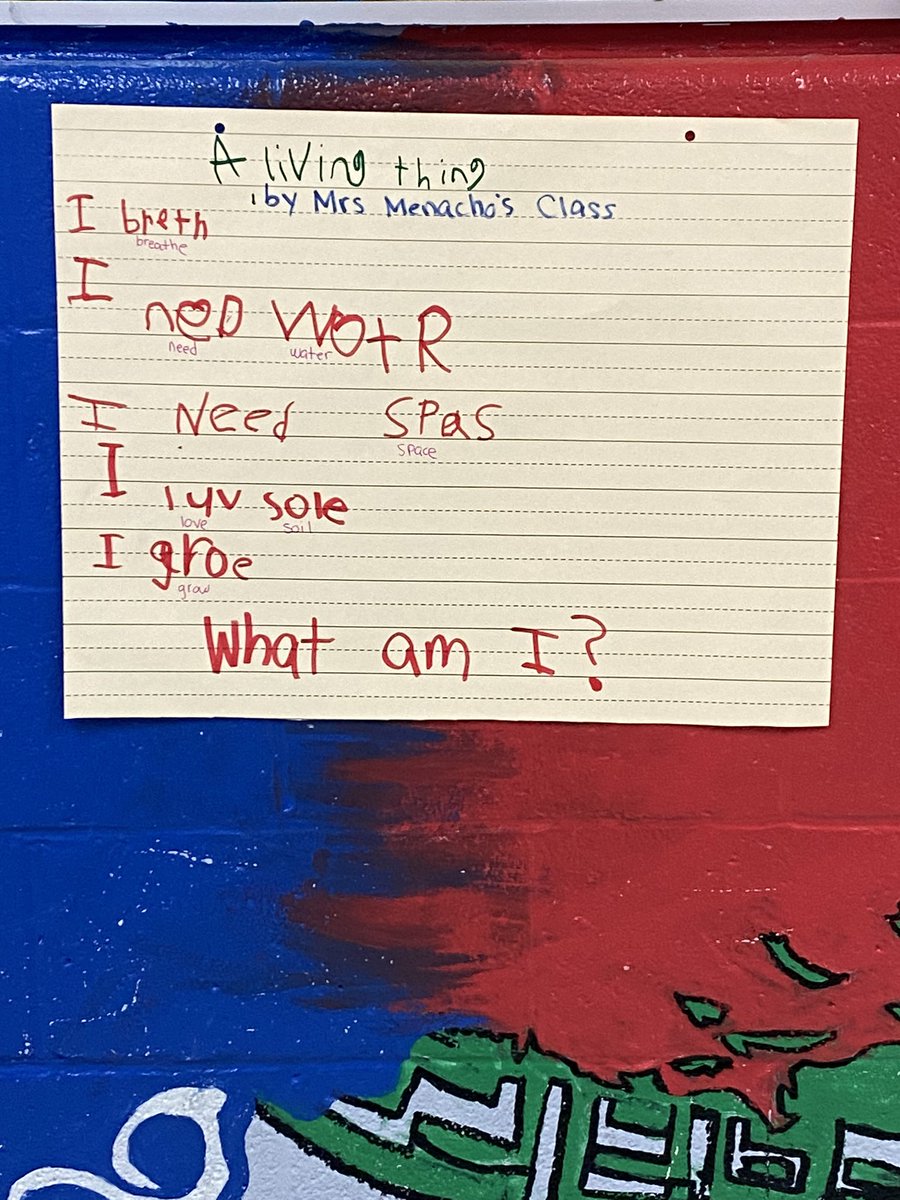 A living thing
by Mrs Menacho's Class
I breth
breathe
I
neeD WOtR
need water
I Need SPaS
space
I luv sole
love soil
I groe
grow
What am I?